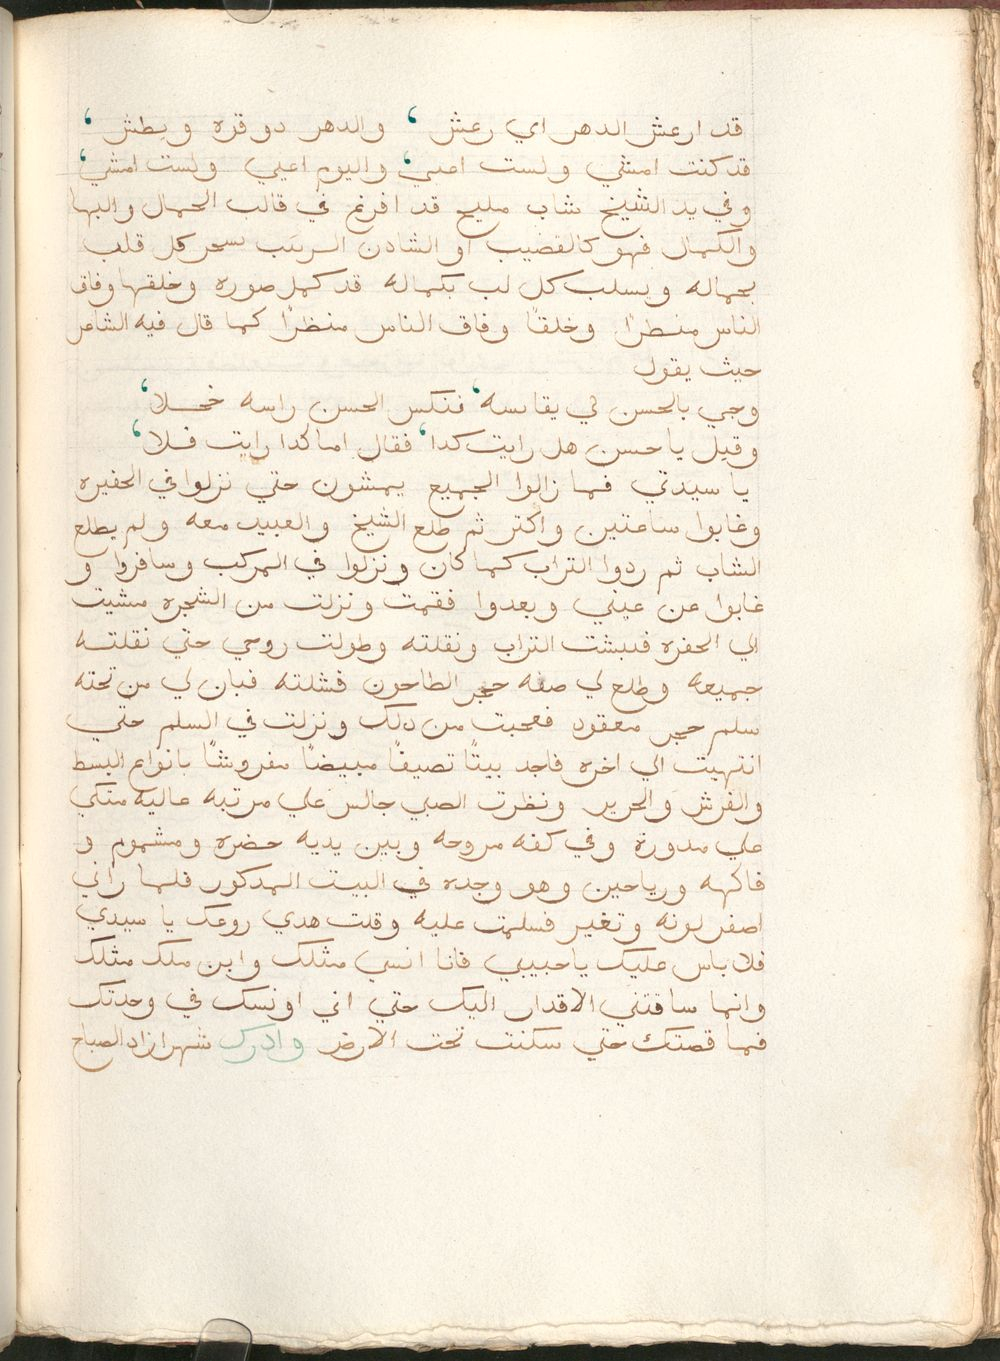 قد ارعش الدهر اي رعش ، والدهر دو قره وبطش ،
قد كنت امشي ولست اعيي ، واليوم اعيي ولست امشي ،
وفي يد الشيخ شاب مليح قد افرغ في قالب الجمال والبها
والكمال فهو كالقضيب او الشادن الربيب يسحر كل قلب
بجماله ويسلب كل لب بكماله قد كمل صوره وخلقها وفاق
الناس منطرا وخلقاً وفاق الناس منظرًا كما قال فيه الشاعر
حيث يقول
وجي بالحسن لي يقايسه ، فنكس الحسن راسه خجلا ،
وقيل يا حسن هل رايت كدا ، فقال اما كدا رايت فلا ،
يا سيدتي فما زالوا الجميع يمشون حتي نزلوا في الحفيره
وغابوا ساعتين واكتر ثم طلع الشيخ والعبيد معه ولم يطلع
الشاب ثم ردوا التراب كما كان ونزلوا في المركب وسافروا و
غابوا عن عيني وبعدوا فقمت ونزلت من الشجره مشيت
الي الحفره فنبشت التراب ونقلته وطولت روحي حتي نقلته
جميعه وطلع لي صفه حجر الطاحون فشلته فبان لي من تحته
سلم حجر معقود فعجبت من دلك ونزلت في السلم حتي
انتهيت الي اخره فاجد بيتًا نصيفًا مبيضًا مفروشًا بانواع البسط
والفرش والحرير ونظرت الصبي جالس علي مرتبه عاليه متكي
علي مدورة وفي كفه مروحه وبين يديه حضره ومشموم و
فاكهه ورياحين وهو وحده في البيت المدكور فلما راني
اصفر لونه وتغير فسلمت عليه وقلت هدي روعك يا سيدي
فلا باس عليك يا حبيبي فانا انسي مثلك وابن ملك مثلك
وانما ساقتني الاقدار اليك حتي اني اونسك في وحدتك
فما قصتك حتي سكنت تحت الارض وادرك شهرازاد الصباح